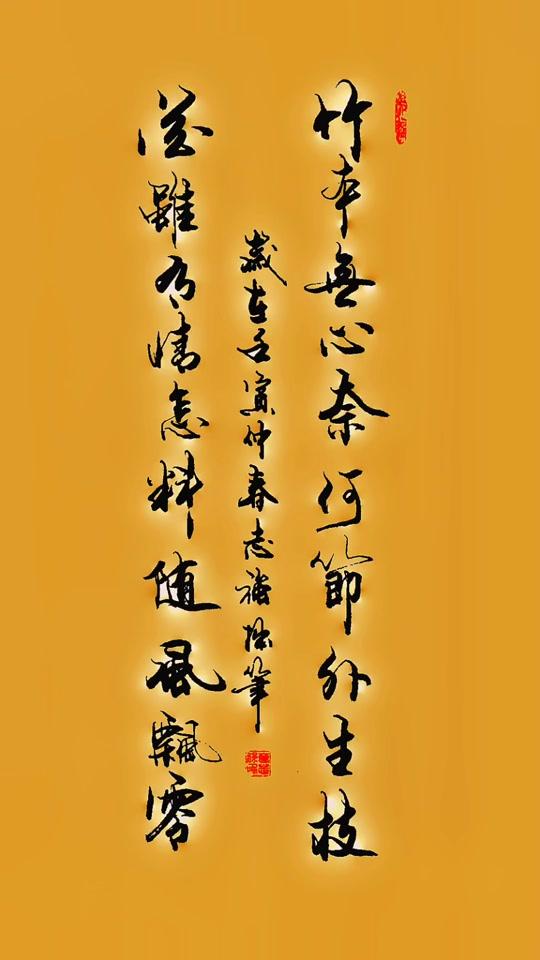 竹本無心奈何節外生枝
花雖有情怎料随風飄零
歲在壬寅仲春志強拙筆